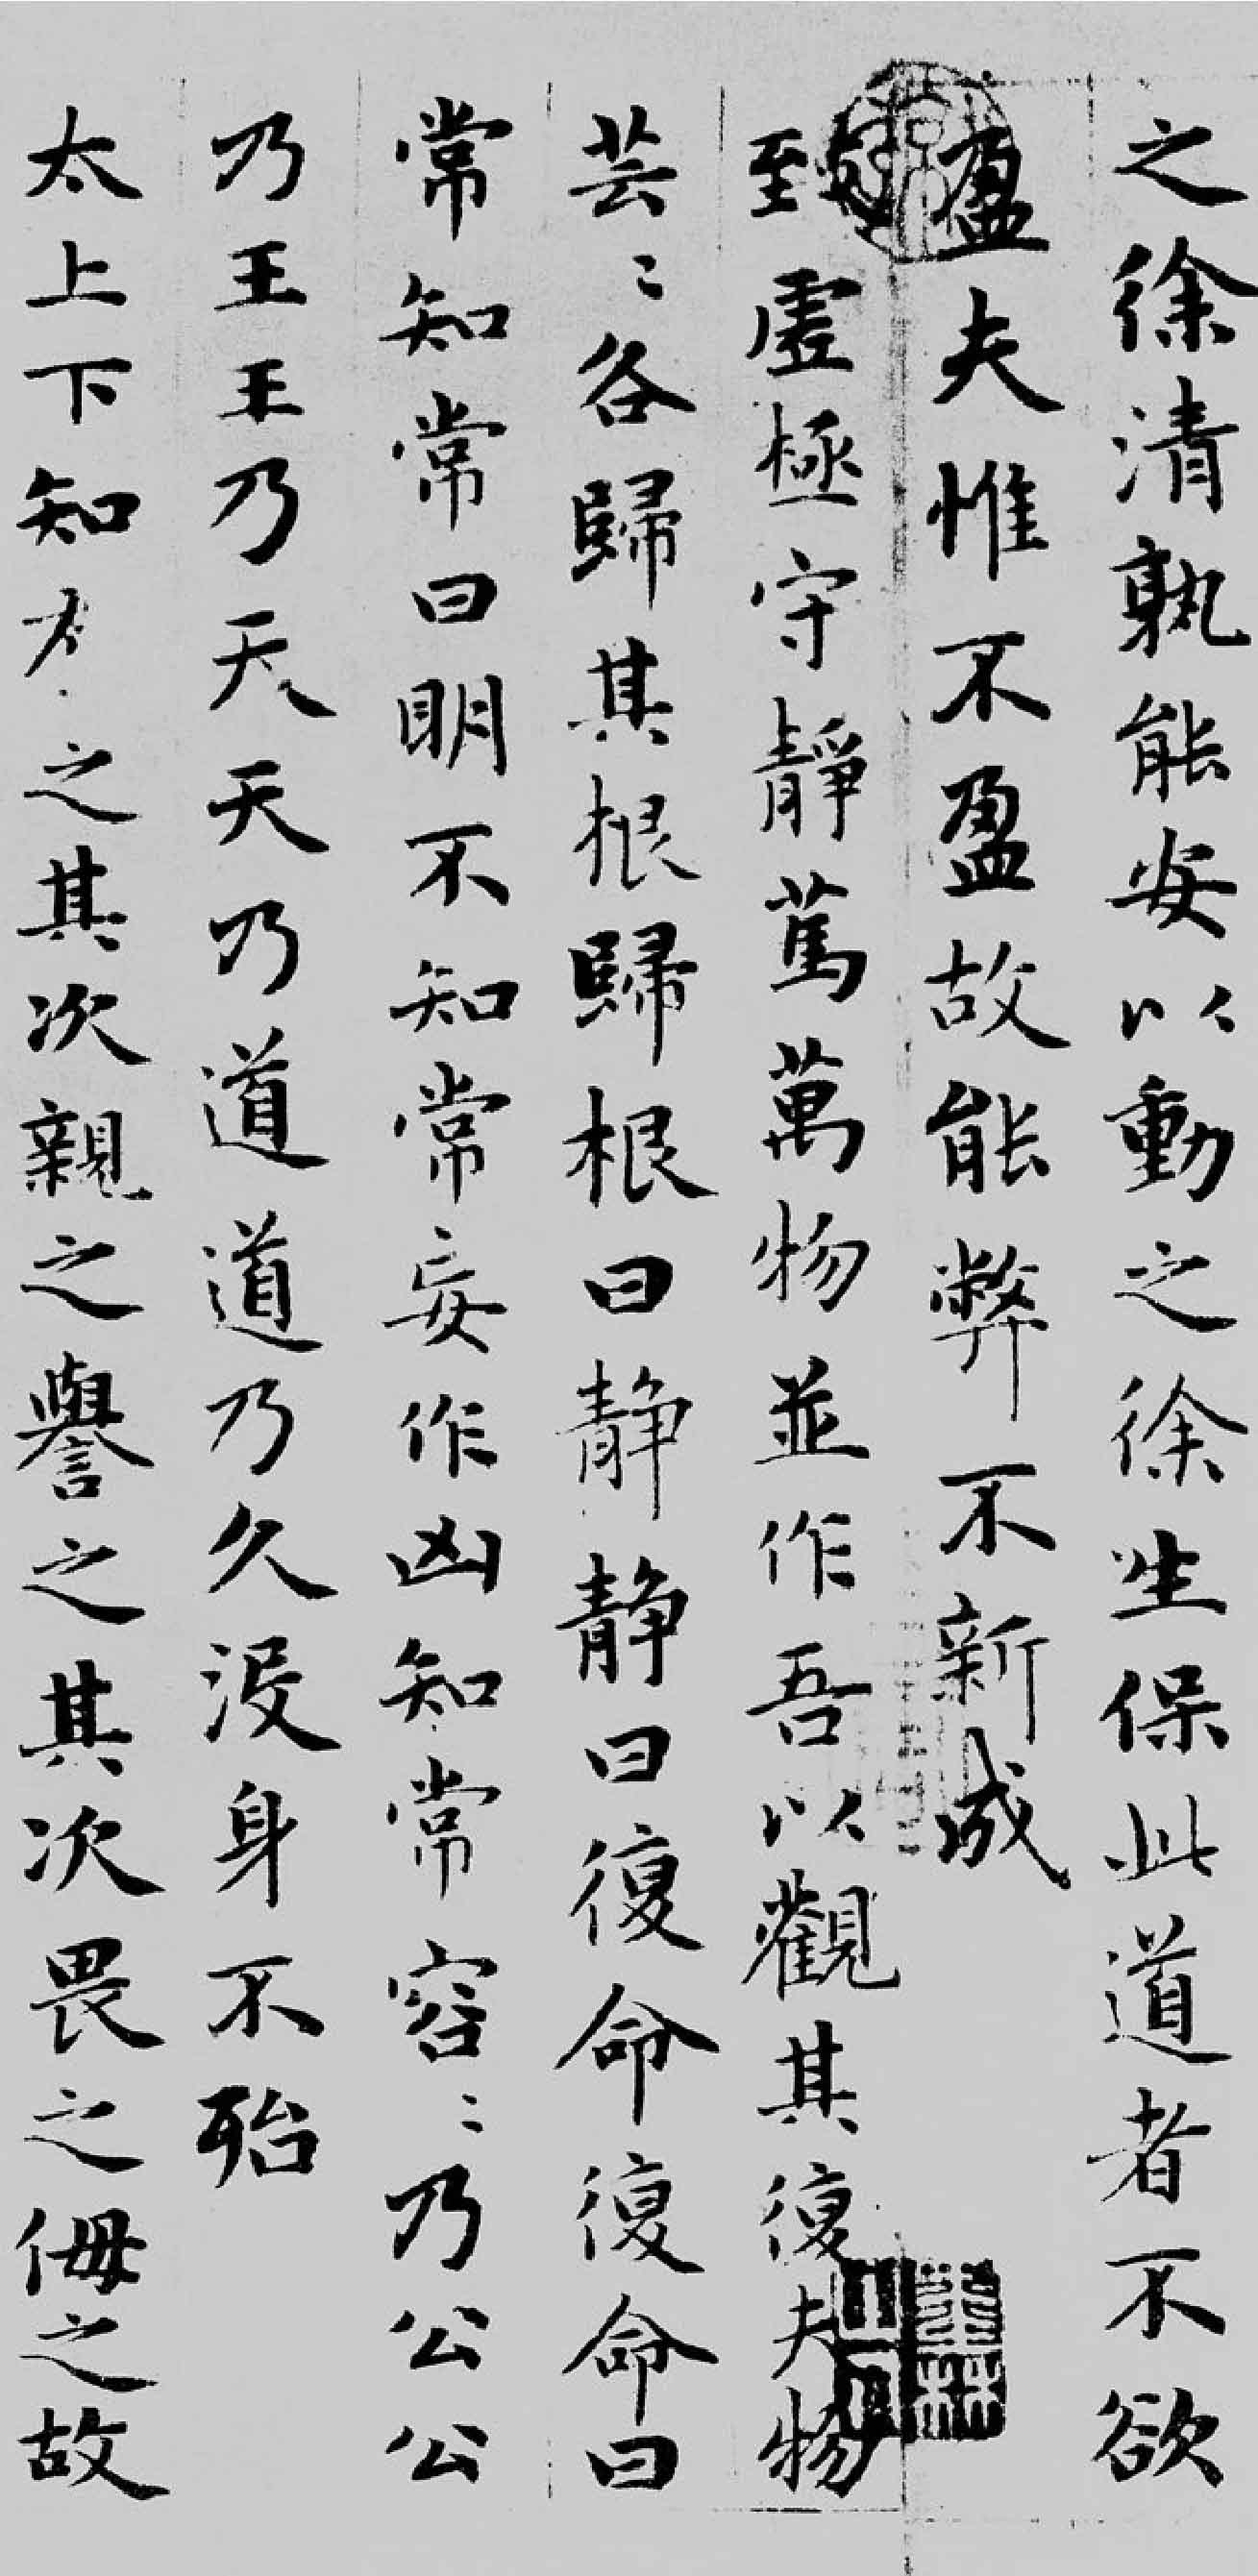 之徐清孰能安以動之徐生保此道者不欲
盈夫惟不盈故能弊不新成
致虛極守靜篤萬物並作吾以觀其復夫物
芸〻各歸其根歸根曰静静曰復命復命曰
常知常曰明不知常妄作凶知常容〻乃公公
乃王王乃天天乃道道乃久没身不殆
太上下知之其次親之譽之其次畏之侮之故